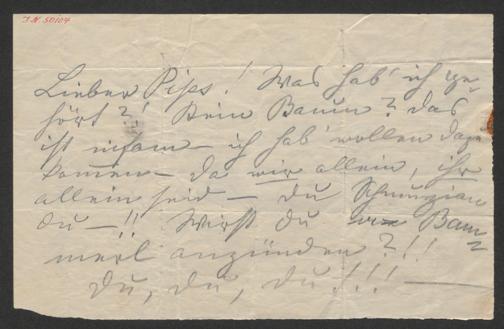 I.N. 50104
Lieber Pips! Was hab' ich ge-
hört?! Kein Baum? Das
ist infam – ich hab' wollen dazu
kommen – da wir allein, ihr
allein seid – du Schmuzian
du –!! Wirst du Baum-
merl anzünden?!!
Du, du, du!!! –